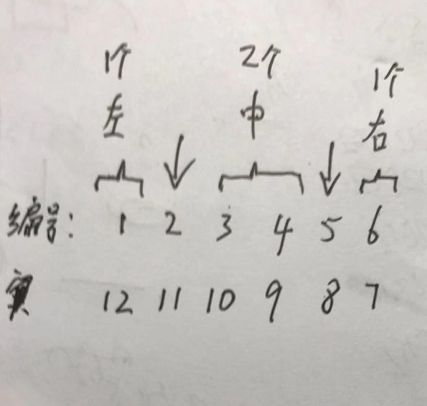 1个 2个 1个
左 中 右
编号: 1 2 3 4 5 6
实 12 11 10 9 8 7